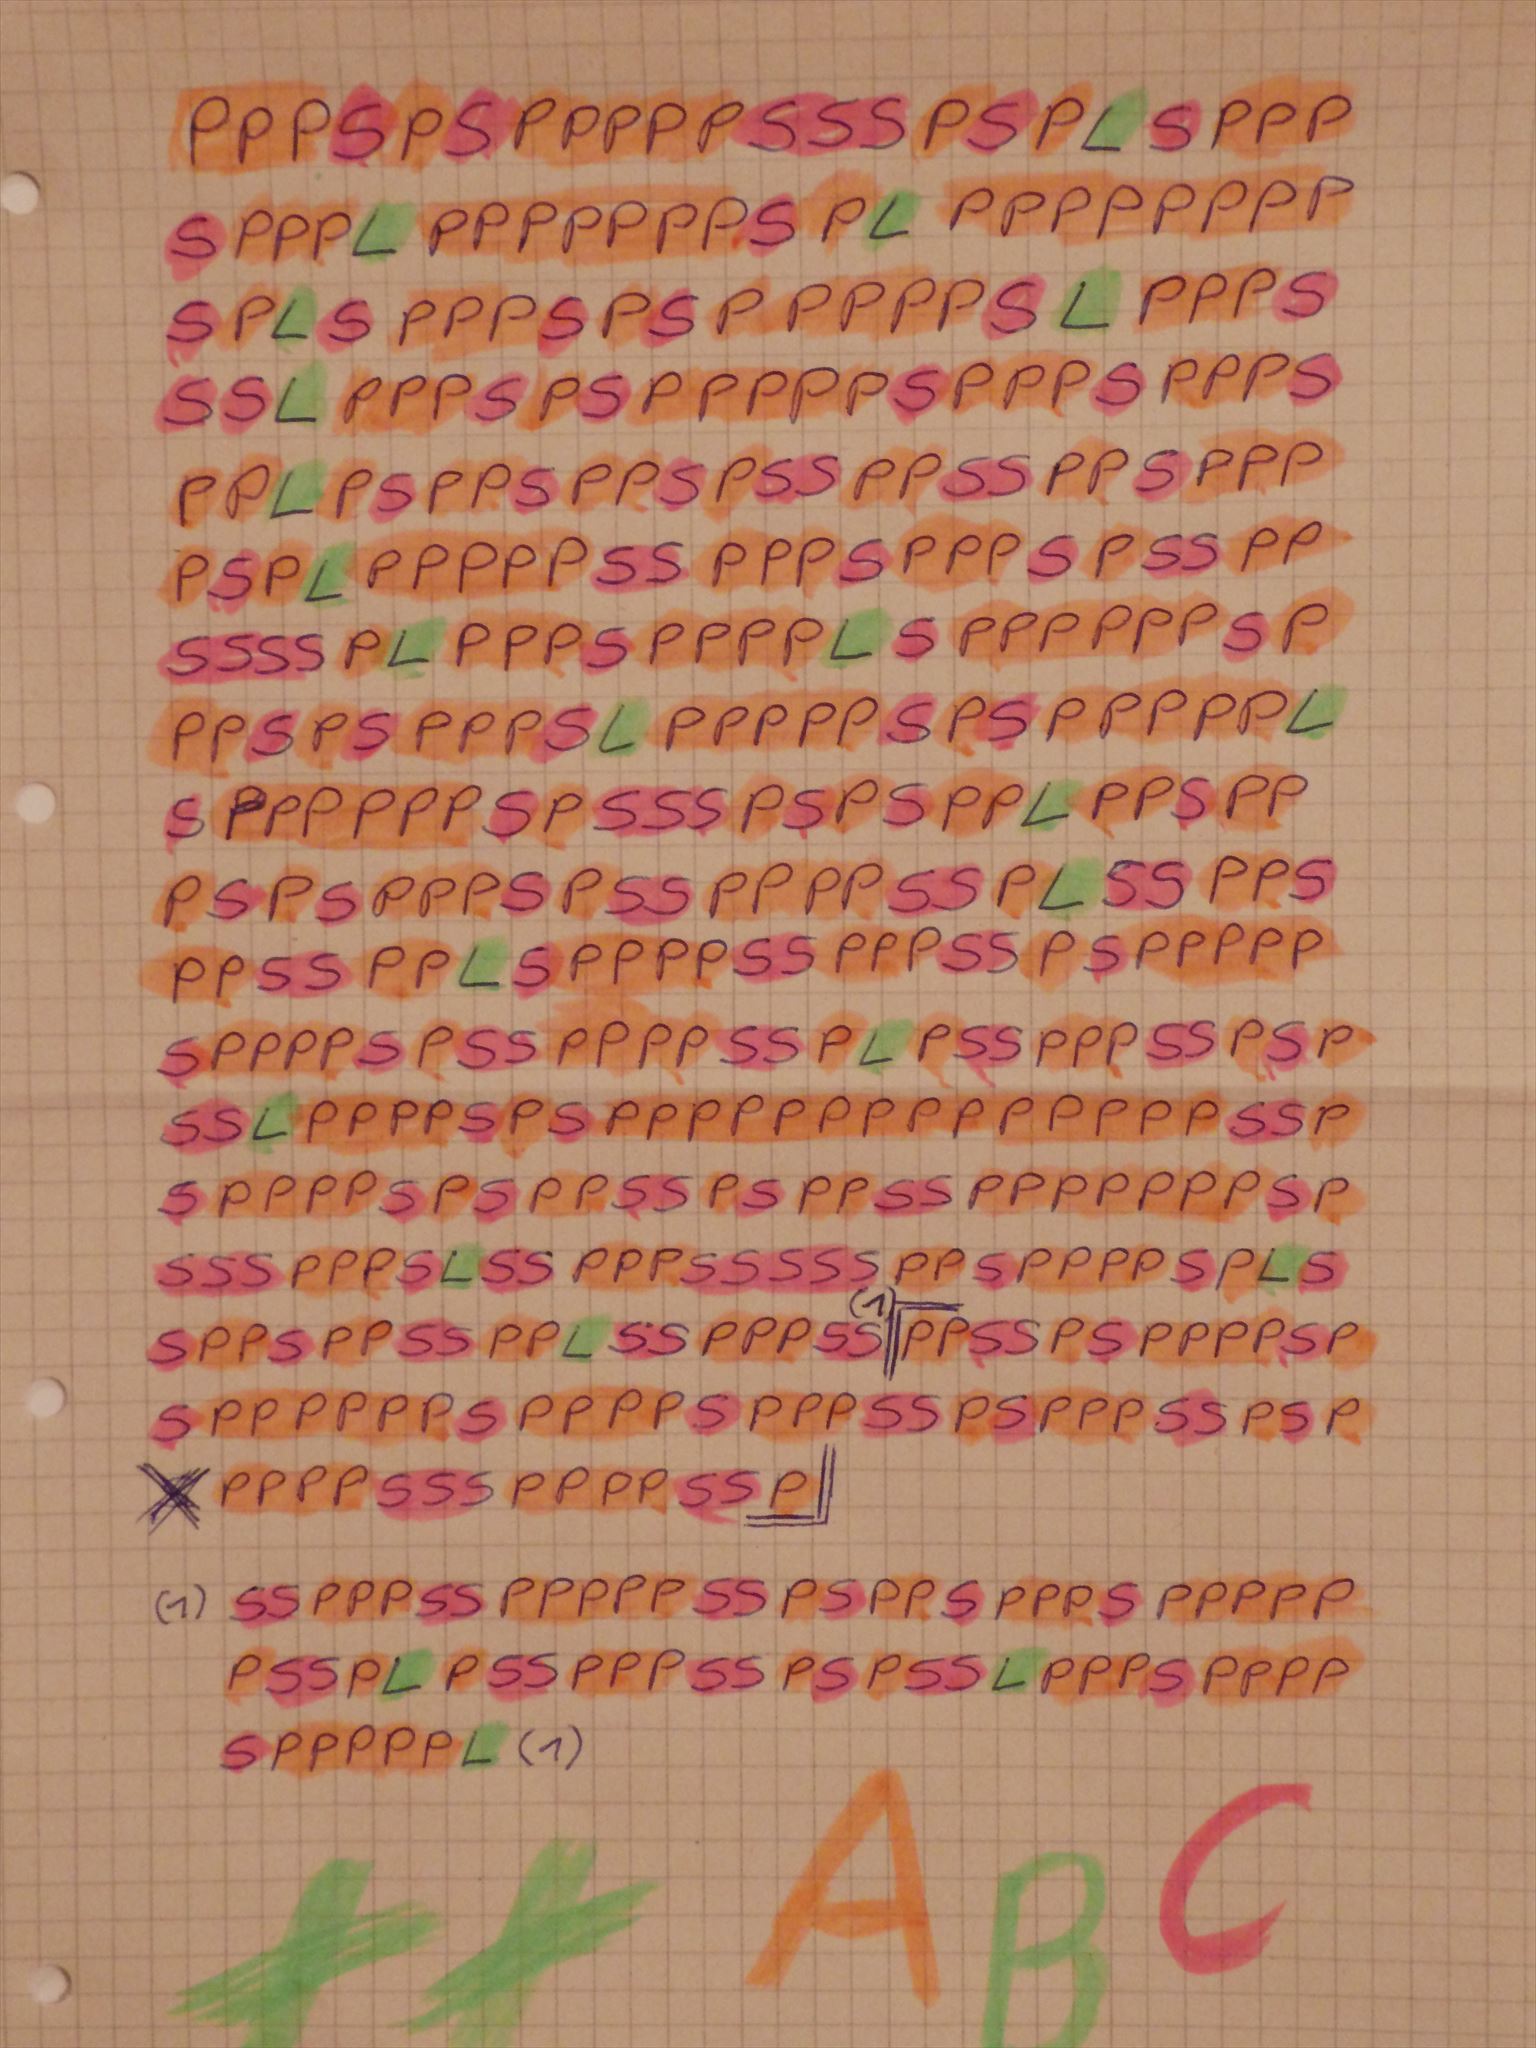 PPPSPSPPPPPSSSPSPLSPPP
SPPPL PPPPPPPS PL PPPPPPPP
SPLS PPPSPSP PPPPSL PPPS
SSL PPPS PS PPPPPSPPPS PPPS
PPL PSPPS PPSPSS PPSS PPSPPP
PSPL PPPPPSS PPPS PPPS PSS PP
SSSS PL PPPS PPPPLS PPPPPPSP
PPSPS PPPSL PPPPPSPS PPPPPL
S PPPPPPSPSSS PSPS PPL PPSPP
PSPS PPPSPSS PPPPSS PLSS PPS
PPSS PPLSPPPPSS PPPSS PSPPPPP
SPPPPSPSS PPPPSS PL PSS PPPSSPSP
SSLPPPPSPS PPPPPPPPPPPPPPSSP
SPPPPSPSPPSSPSPPSSPPPPPPPSP
SSSPPPSLSS PPPSSSSSPPSPPPPSPLS
SPPSPPSS PPLSS PPPSS(1)PPSSPSPPPPSP
SPPPPPPSPPPPSPPPSSPSPPPSSPSP
PPPPSSS PPPPSSP
(1) SSPPPSS PPPPPSS PSPPS PPPS PPPPP
PSSPL PSSPPPSS PSPSSLPPPSPPPP
SPPPPPL (1)
A B C